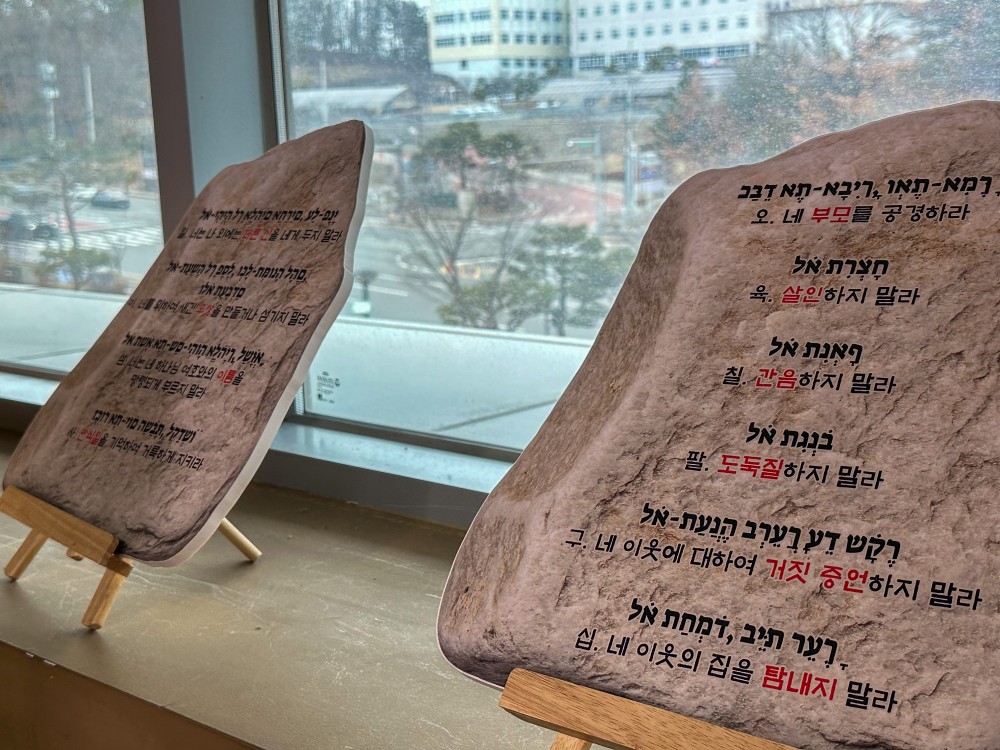 일. 너는 나 외에는 다른 신을 네게 두지 말라
이. 너를 위하여 새긴 우상을 만들거나 섬기지 말라
삼. 너는 네 하나님 여호와의 이름을
망령되게 부르지 말라
사. 안식일을 기억하여 거룩하게 지키라
오. 네 부모를 공경하라
חָצְרִת אֹל
육. 살인하지 말라
ףָאְנִת אֹל
칠. 간음하지 말라
בֹנְגִת אֹל
팔. 도둑질하지 말라
רֶקָשׁ דֵע ךָעֵרְב הֶנֲעַת-אֹל
구. 네 이웃에 대하여 거짓 증언하지 말라
ךָעֵר תיֵּב ,דֹמְחַת אֹל
십. 네 이웃의 집을 탐내지 말라